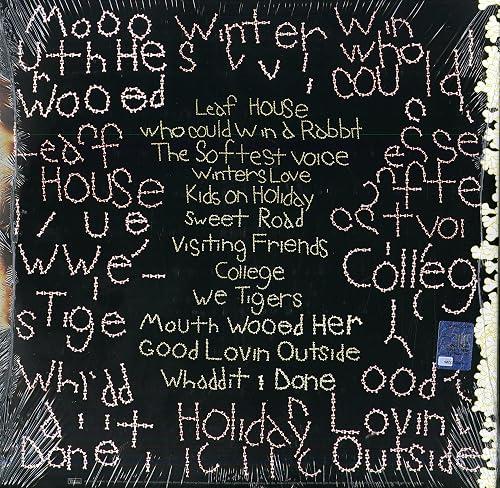 Mooo Winter Win
uth He s v v i
Wooed could
Leaf
HOUSE
we
WWe'
s Tige
Whidd
Leaf HOUSE
who could Win a Rabbit
The Softest Voice
Winters Love
Kids on Holiday
Sweet Road
Visiting Friends
College
We Tigers
Mouth Wooed Her
Good Lovin Outside
Whaddit i Done
esse
ffte
ostvoi
Colleg
ood
d i i t Holiday Lovin
Done Outside